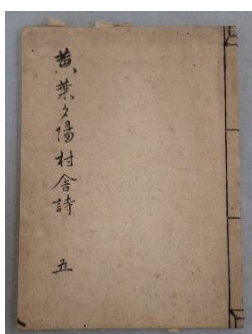 黄葉夕陽村舎詩 五